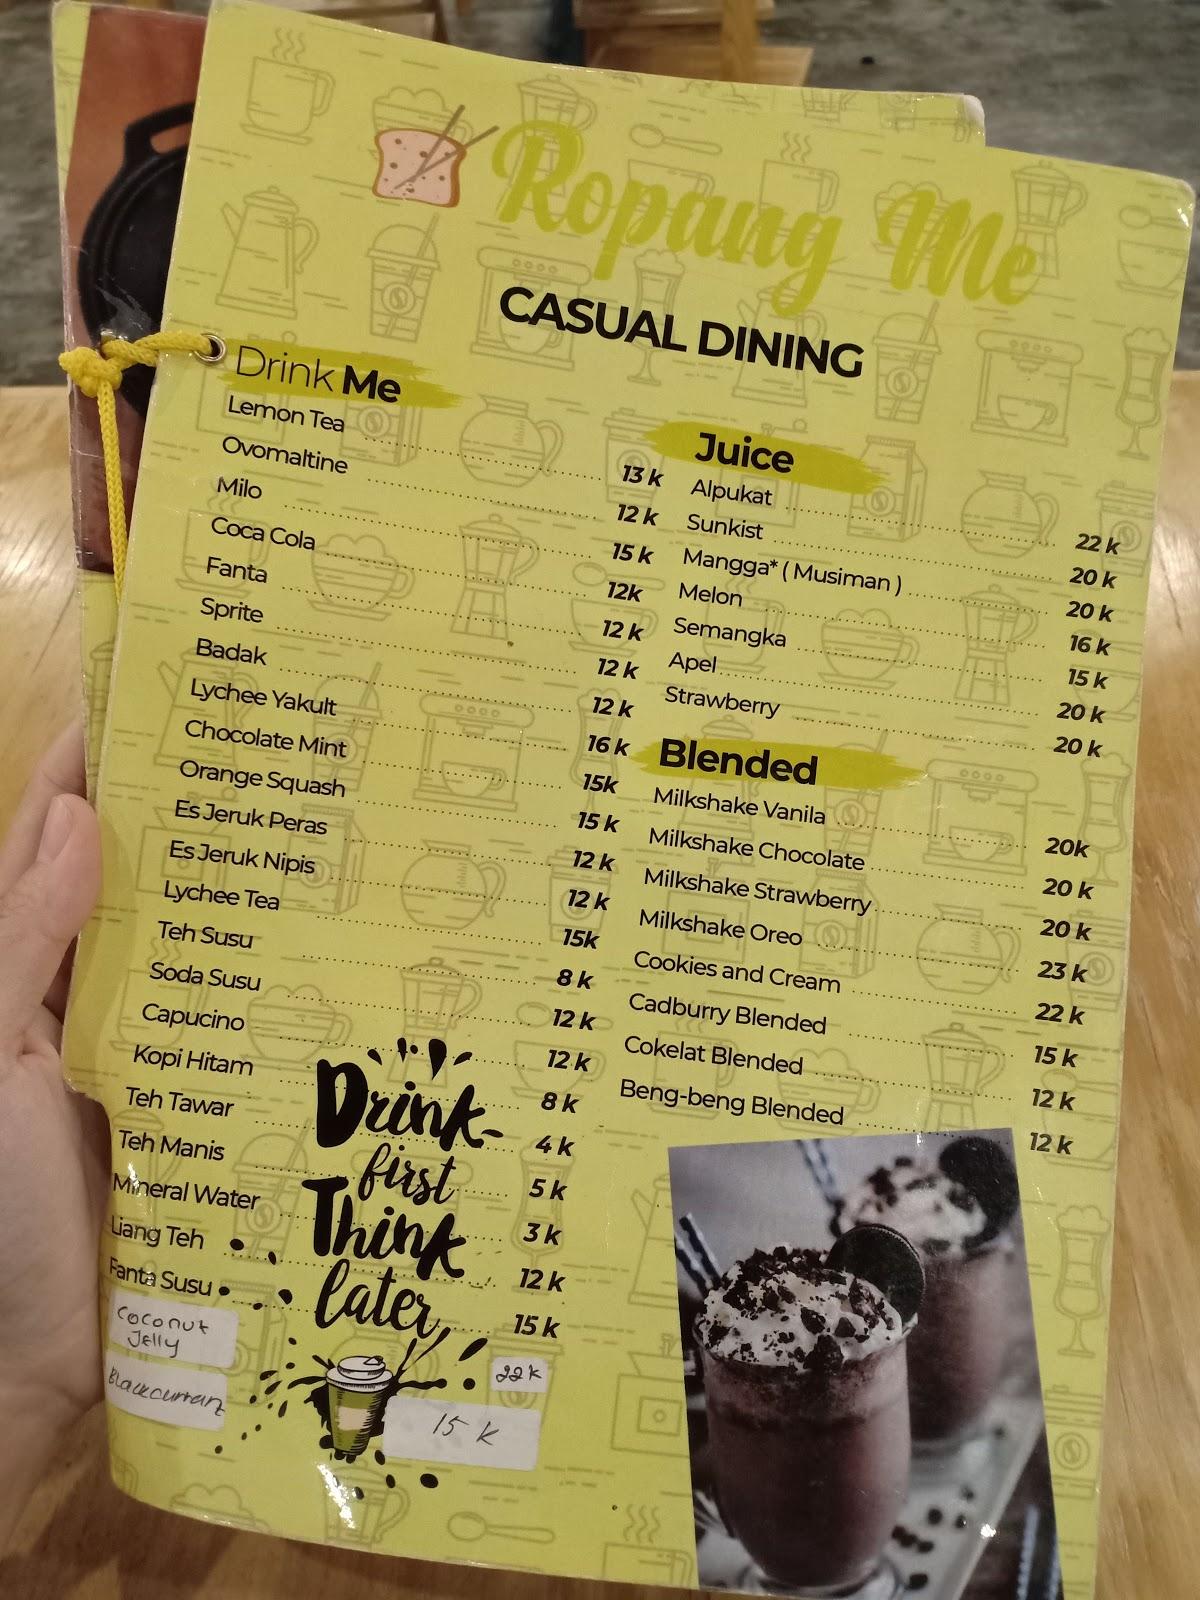 Ropang Me
CASUAL DINING
Drink Me
Lemon Tea 13 k
Ovomaltine 12 k
Milo 15 k
Coca Cola 12k
Fanta 12 k
Sprite 12 k
Badak 12 k
Lychee Yakult 16 k
Chocolate Mint 15k
Orange Squash 15 k
Es Jeruk Peras 12 k
Es Jeruk Nipis 12 k
Lychee Tea 15k
Teh Susu 8 k
Soda Susu 12 k
Capucino 12 k
Kopi Hitam 8 k
Teh Tawar 4 k
Teh Manis 5 k
Mineral Water 3 k
Liang Teh 12 k
Fanta Susu 15 k
Coconut
Jelly
22 K
Blackcurrant
15 K
Drink
first
Think
later
Juice
Alpukat 22 k
Sunkist 20 k
Mangga* ( Musiman ) 20 k
Melon 16 k
Semangka 15 k
Apel 20 k
Strawberry 20 k
Blended
Milkshake Vanila 20k
Milkshake Chocolate 20 k
Milkshake Strawberry 20 k
Milkshake Oreo 23 k
Cookies and Cream 22 k
Cadburry Blended 15 k
Cokelat Blended 12 k
Beng-beng Blended 12 k